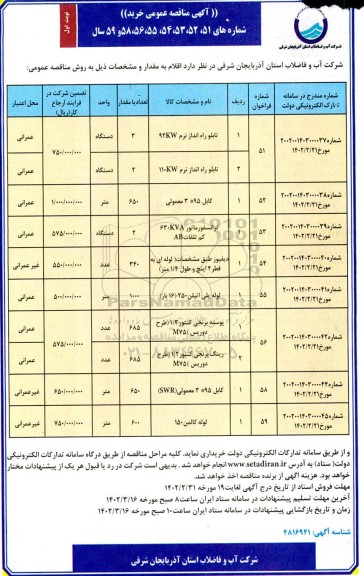 نوبت اول
((آگهی مناقصه عمومی خرید))
شماره های ۵۱، ۵۲، ۵۳، ۵۴، ۵۵، ۵۶، ۵۸ و ۵۹ سال
شرکت آب و فاضلاب آذربایجان شرقی
شرکت آب و فاضلاب استان آذربایجان شرقی در نظر دارد اقلام به مقدار و مشخصات ذیل به روش مناقصه عمومی:
شماره مندرج در سامانه تدارک الکترونیکی دولت | شماره فراخوان | ردیف | نام و مشخصات کالا | تعداد یا مقدار | واحد | تضمین شرکت در فرایند ارجاع کار(ریال) | محل اعتبار
شماره ۲۰۰۲۰۰۱۴۰۳۰۰۰۰۳۷ مورخ ۱۴۰۲/۲/۲۱ | ۵۱ | ۱ | تابلو راه انداز نرم ۹۲KW | ۳ | دستگاه | ۷۵۰/۰۰۰/۰۰۰ | عمرانی
۲ | تابلو راه انداز نرم ۱۱۰KW | ۲ | دستگاه | عمرانی
شماره ۲۰۰۲۰۰۱۴۰۳۰۰۰۰۳۸ مورخ ۱۴۰۲/۲/۲۱ | ۵۲ | ۱ | کابل ۹۵*۳ معمولی | ۶۵۰ | متر | ۱/۰۰۰/۰۰۰/۰۰۰ | عمرانی
شماره ۲۰۰۲۰۰۱۴۰۳۰۰۰۰۳۹ مورخ ۱۴۰۲/۲/۲۱ | ۵۳ | ۱ | ترانسفورماتور ۶۳۰KVA کم تلفات AB | ۲ | دستگاه | ۵۷۵/۰۰۰/۰۰۰ | عمرانی
شماره ۲۰۰۲۰۰۱۴۰۳۰۰۰۰۴۰ مورخ ۱۴۰۲/۲/۲۱ | ۵۴ | ۱ | دیفیوز طبق مشخصات( لوله ای به قطر ۲ اینچ و طول ۱/۴ متر) | ۳۴۰ | عدد | ۵۵۰/۰۰۰/۰۰۰ | غیر عمرانی
شماره ۲۰۰۲۰۰۱۴۰۳۰۰۰۰۴۱ مورخ ۱۴۰۲/۲/۲۱ | ۵۵ | ۱ | لوله پلی اتیلن ۲۵۰ (۱۶ بار) | ۱۰۰۰ | متر | ۵۰۰/۰۰۰/۰۰۰ | عمرانی
شماره ۲۰۰۲۰۰۱۴۰۳۰۰۰۰۴۲ مورخ ۱۴۰۲/۲/۲۱ | ۵۶ | ۱ | پوسته برنجی کنتور ۱/۲ (طرح دوریس M۷۵) | ۶۸۵ | عدد | ۵۷۵/۰۰۰/۰۰۰ | غیرعمرانی
۲ | رینگ برنجی کنتور ۱/۲ (طرح دوریس M۷۵) | ۶۸۵ | عدد | غیرعمرانی
شماره ۲۰۰۲۰۰۱۴۰۳۰۰۰۰۴۴ مورخ ۱۴۰۲/۲/۲۱ | ۵۸ | ۱ | کابل ۹۵*۳ معمولی (SWR) | ۶۵۰ | متر | ۶۵۰/۰۰۰/۰۰۰ | غیرعمرانی
شماره ۲۰۰۲۰۰۱۴۰۳۰۰۰۰۴۵ مورخ ۱۴۰۲/۲/۲۱ | ۵۹ | ۱ | لوله کالمن ۱۵۰ | ۶۰۰ | متر | ۷۵۰/۰۰۰/۰۰۰ | غیرعمرانی
و از طریق سامانه تدارکات الکترونیکی دولت خریداری نماید. کلیه مراحل مناقصه از طریق درگاه سامانه تدارکات الکترونیکی
دولت( ستاد) به آدرس www.setadiran.ir انجام خواهد شد . بدیهی است شرکت در رد یا قبول هر یک از پیشنهادات مختار
خواهد بود. هزینه آگهی از برنده مناقصه اخذ خواهد شد.
مهلت فروش اسناد از تاریخ درج آگهی لغایت ۱۹ مورخه ۱۴۰۲/۲/۳۱
آخرین مهلت تسلیم پیشنهادات در سامانه ستاد ایران ساعت ۸ صبح مورخه ۱۴۰۲/۳/۱۶
زمان و تاریخ بازگشایی پیشنهادات در سامانه ستاد ایران ساعت ۱۰ صبح مورخه ۱۴۰۲/۳/۱۶
شناسه آگهی: ۴۸۱۶۹۴۱
شرکت آب و فاضلاب استان آذربایجان شرقی